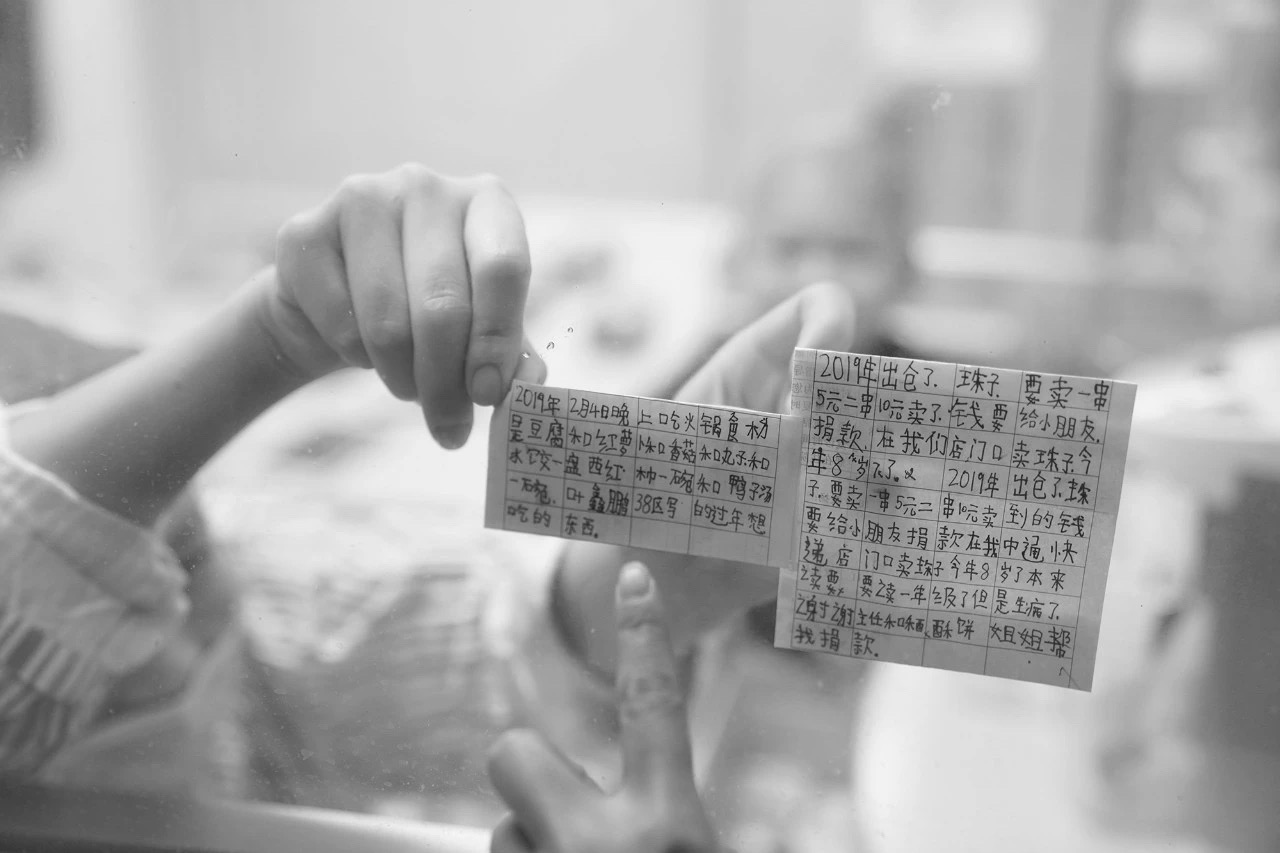 2019年 2月4日晚 上口吃火锅食材
是豆腐和红萝卜和香菇和丸子和
水饺一盘西红柿一碗和鸭子汤
一碗. 叶鑫鹏38区号的过年想
吃的东西.
2019年出仓了. 珠子. 要卖一串
5元二串10元卖了钱要给小朋友.
捐款 在我们店门口卖珠子今
年8岁了. 2019年出仓了珠
子.要卖一串5元二串10元卖到的钱
要给小朋友捐款在我中通快
递店门口卖珠子今年8岁了本来
读要 要读一年级了但是生病了.
谢谢主任和 酥饼姐姐帮
我捐款.